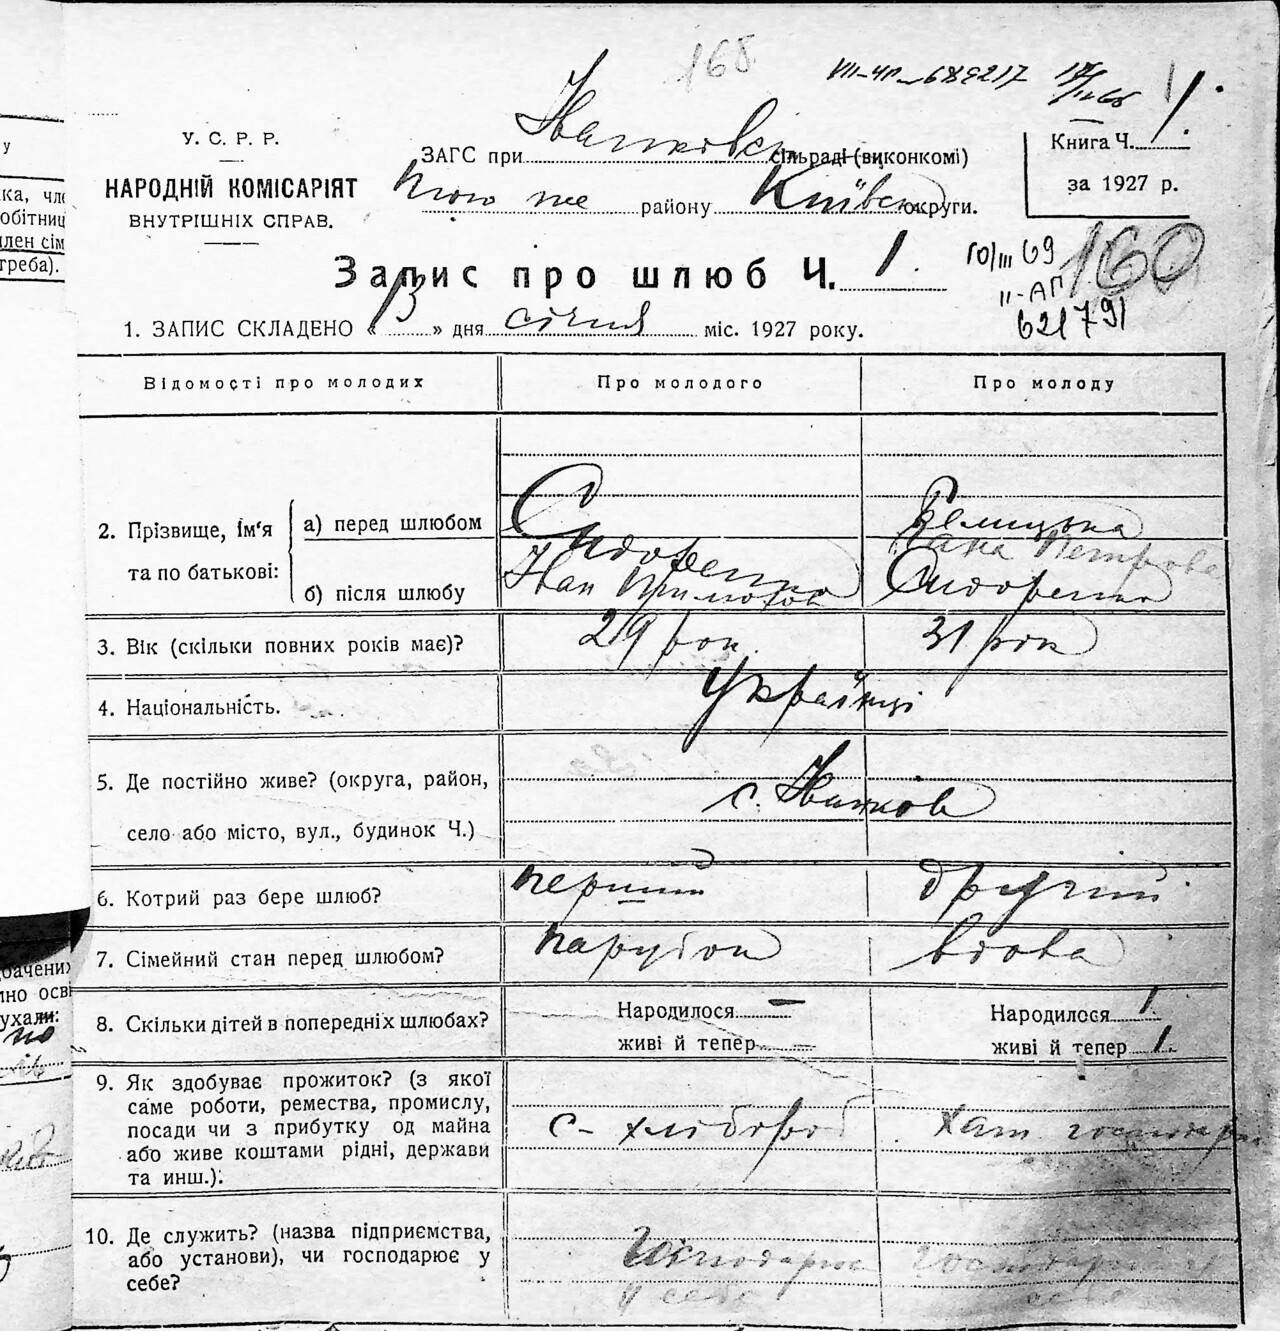 168
VII-ЧП-689217
1
У. С. Р. Р.
НАРОДНІЙ КОМІСАРІЯТ
ВНУТРІШНІХ СПРАВ.
ЗАГС при Іванковск. сільраді (виконкомі)
того же району Київської округи.
Книга Ч. 1.
за 1927 р.
Запис про шлюб Ч. 1.
10/III 69
II-АП
621791
160
1. ЗАПИС СКЛАДЕНО « 13 » дня січня міс. 1927 року.
Відомості про молодих
Про молодого
Про молоду
2. Прізвище, ім'я
та по батькові:
а) перед шлюбом
б) після шлюбу
Сидоренко
Іван
Петрова
Сидоренко
3. Вік (скільки повних років має)?
29 рок.
31 рік
4. Національність.
Українці
5. Де постійно живе? (округа, район,
село або місто, вул., будинок Ч.)
с. Іванков
6. Котрий раз бере шлюб?
перший
другий
7. Сімейний стан перед шлюбом?
парубок
вдова
8. Скільки дітей в попередніх шлюбах?
Народилося –
живі й тепер
Народилося 1
живі й тепер 1.
9. Як здобуває прожиток? (з якої
саме роботи, ремества, промислу,
посади чи з прибутку од майна
або живе коштами рідні, держави
та инш.).
с-хлібороб
хат господарк
10. Де служить? (назва підприємства,
або установи), чи господарює у
себе?
Господарює
у себе